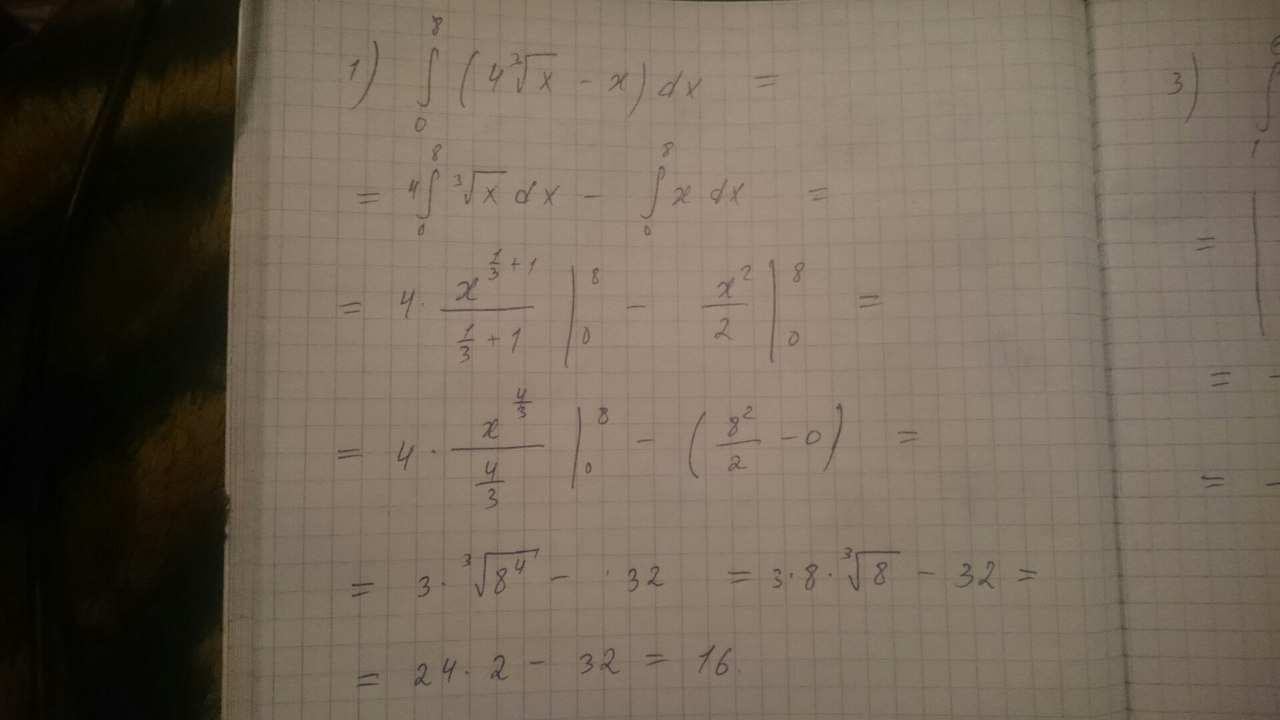 1) ∫₀⁸ (4∛x − x) dx =
= 4∫₀⁸ ∛x dx − ∫₀⁸ x dx =
= 4 · x^(1/3 + 1) / (1/3 + 1) |₀⁸ − x²/2 |₀⁸ =
= 4 · x^(4/3) / (4/3) |₀⁸ − (8²/2 − 0) =
= 3 · ∛(8⁴) − · 32 = 3 · 8 · ∛8 − 32 =
= 24 · 2 − 32 = 16.
3) ∫
=
=
=